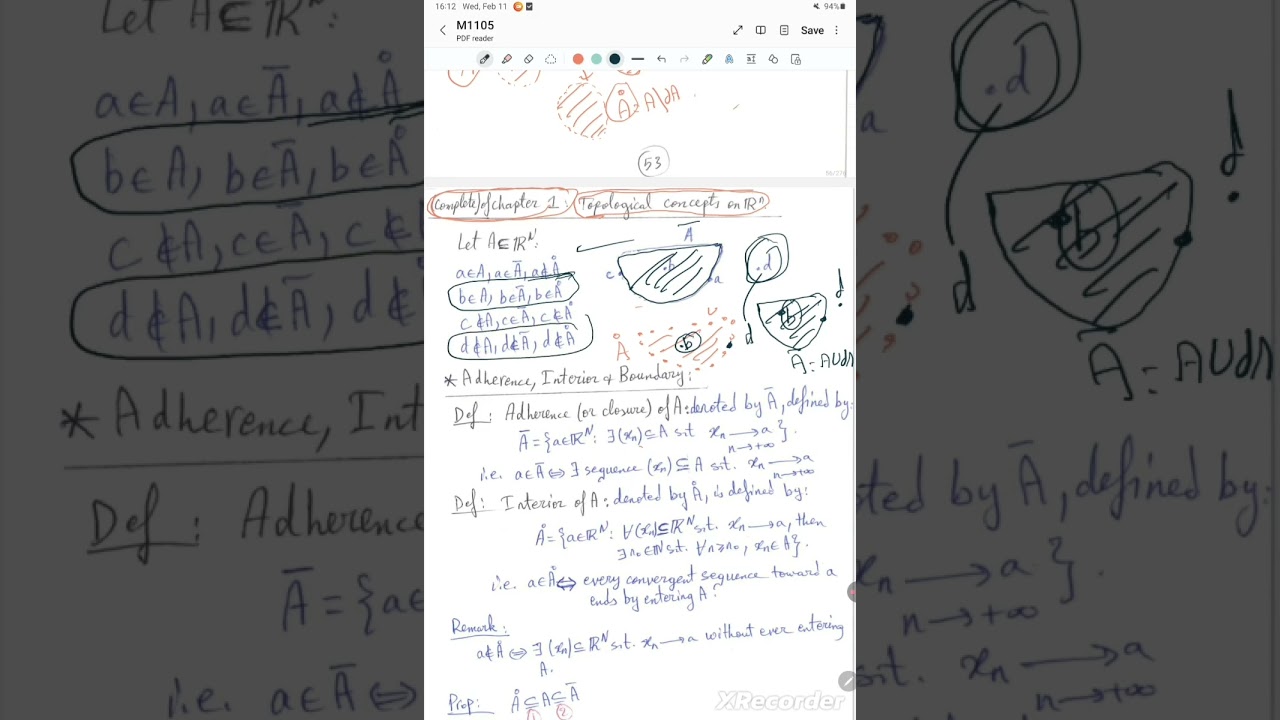 16:12 Wed, Feb 11
94%
M1105
PDF reader
Save
Å = A\∂A
53
56/276
(complete) of chapter 1: Topological concepts on ℝⁿ
Let A⊆ℝᴺ:
a∈A, a∈Ā, a∉Å
b∈A, b∈Ā, b∈Å
c∉A, c∈Ā, c∉Å
d∉A, d∉Ā, d∉Å
Ā
c
b
a
d
Å
b
d
b
d
Ā = A∪∂A
* Adherence, Interior & Boundary:
Def: Adherence (or closure) of A: denoted by Ā, defined by:
Ā = {a∈ℝᴺ: ∃(xₙ)⊆A s.t xₙ → a }.
n→+∞
i.e. a∈Ā ⇔ ∃ sequence (xₙ)⊆A s.t. xₙ → a
n→+∞
Def: Interior of A: denoted by Å, is defined by:
Å = {a∈ℝᴺ: ∀(xₙ)⊆ℝᴺ s.t. xₙ → a, then
∃n₀∈ℕ s.t. ∀n≥n₀, xₙ∈A}.
i.e. a∈Å ⇔ every convergent sequence toward a
ends by entering A.
Remark:
a∉Å ⇔ ∃(xₙ)⊆ℝᴺ s.t. xₙ → a without ever entering
A.
Prop: Å⊆A⊆Ā
1 2
XRecorder